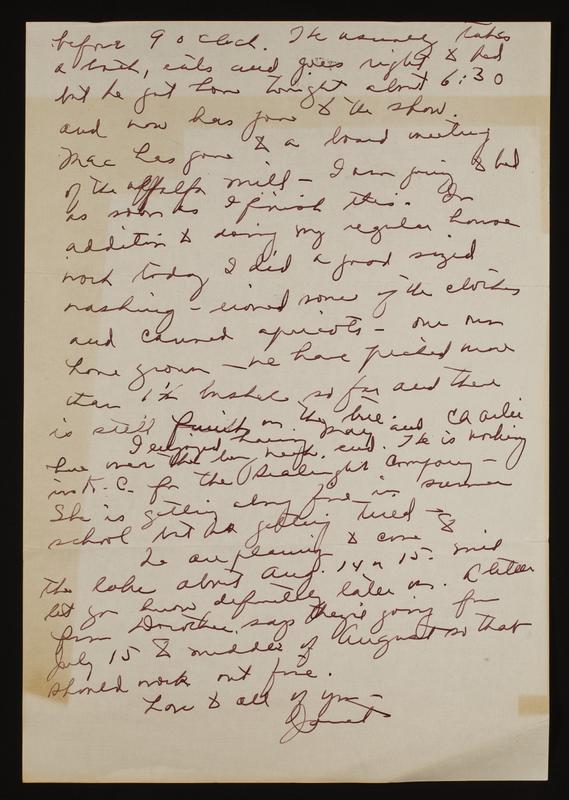 before 9 o'clock. He usually takes
a bath, eats and goes right to bed
but he got home tonight about 6:30
and now has gone to the show.
Mac has gone to a board meeting
of the alfalfa mill - I am going to bed
as soon as I finish this. In
addition to doing my regular house
work today I did a good sized
washing - ironed some of the clothes
and canned apricots - our own
home grown - we have picked more
than 1½ bushel so far and there
is still fruit on the tree.
I enjoyed having Mary and Charlie
here over the week end. He is working
in K.C. for the Company -
She is getting along fine in summer
school but is getting tired -
We are planning to come to
the lake about Aug. 14 or 15. Will
let you know definitely later on. A letter
from Dorothy says they're going for
July 15 to middle of August so that
should work out fine.
Love to all of you -
Janet